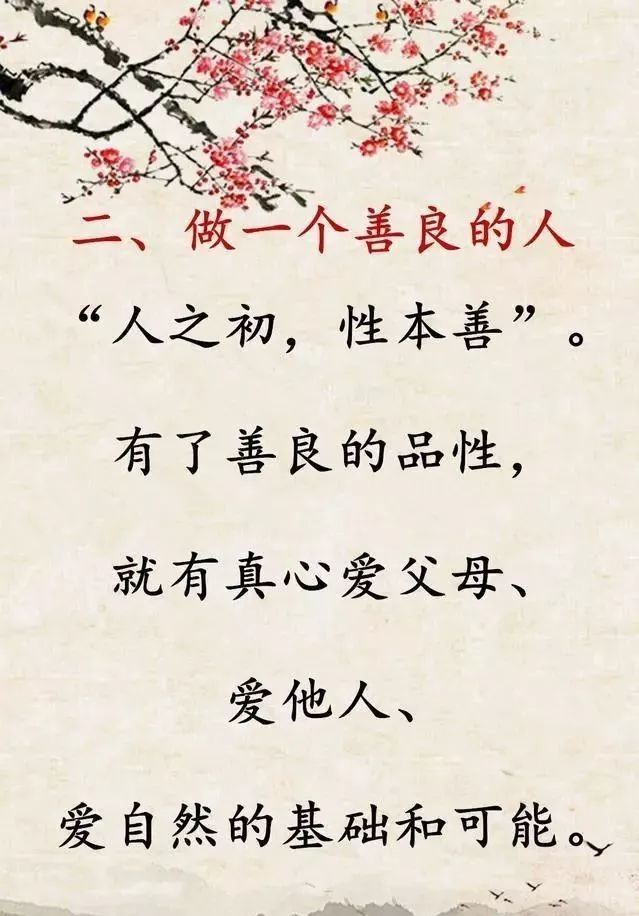 二、做一个善良的人
“人之初，性本善”。
有了善良的品性，
就有真心爱父母、
爱他人、
爱自然的基础和可能。